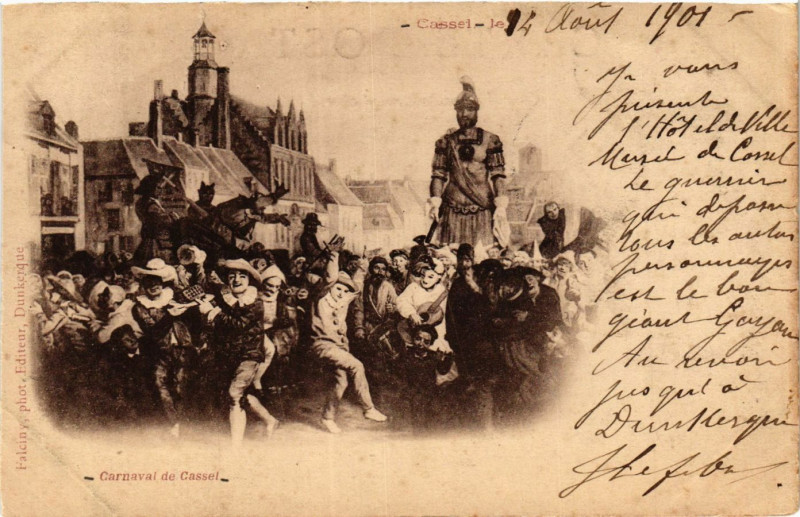 - Cassel - le 14 Août 1901 -
Je vous
présente
l'Hôtel de Ville
Musée de Cassel
Le guerrier
qui dépasse
tous les autres
personnages
est le bon
géant Gayan
Au revoir
jusqu'à
Dunkerque
Lefeb
Falciny, phot. Editeur, Dunkerque
- Carnaval de Cassel -